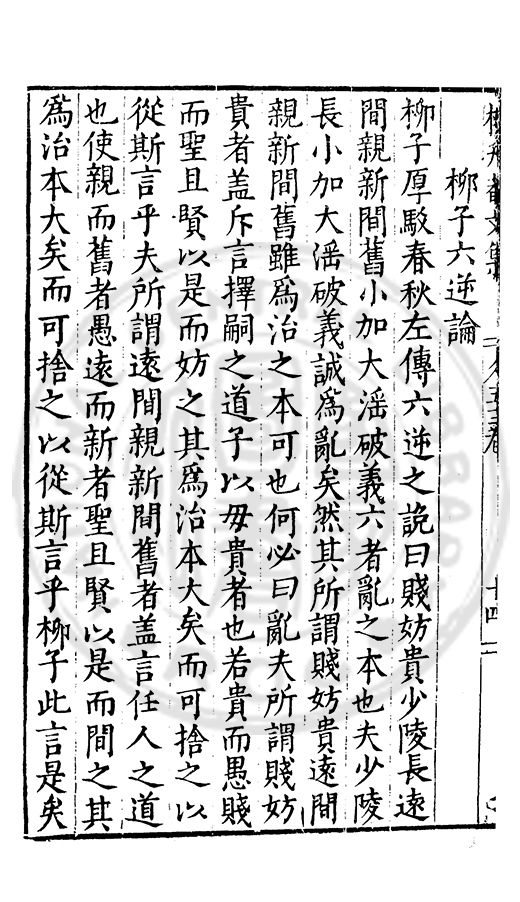 柳子六逆論
柳子厚駁春秋左傳六逆之說曰賤妨貴少陵長遠
間親新間舊小加大滛破義六者亂之本也夫少陵
長小加大滛破義誠爲亂矣然其所謂賤妨貴遠間
親新間舊雖爲治之本可也何必曰亂夫所謂賤妨
貴者盖斥言擇嗣之道子以毋貴者也若貴而愚賤
而聖且賢以是而妨之其爲治本大矣而可捨之以
從斯言乎夫所謂遠間親新間舊者盖言任人之道
也使親而舊者愚遠而新者聖且賢以是而間之其
爲治本大矣而可捨之以從斯言乎柳子此言是矣